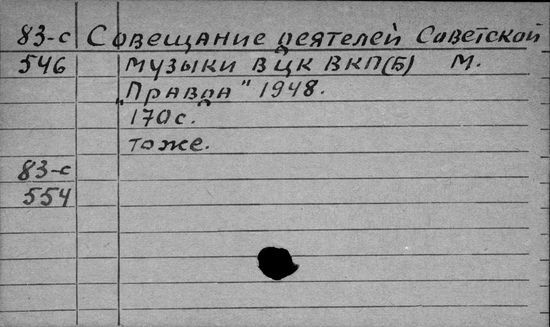 83-с Совещание деятелей Советской
546 музыки в ЦК ВКП(б) М.
„Правда" 1948.
170с.
тоже.
83-с
554